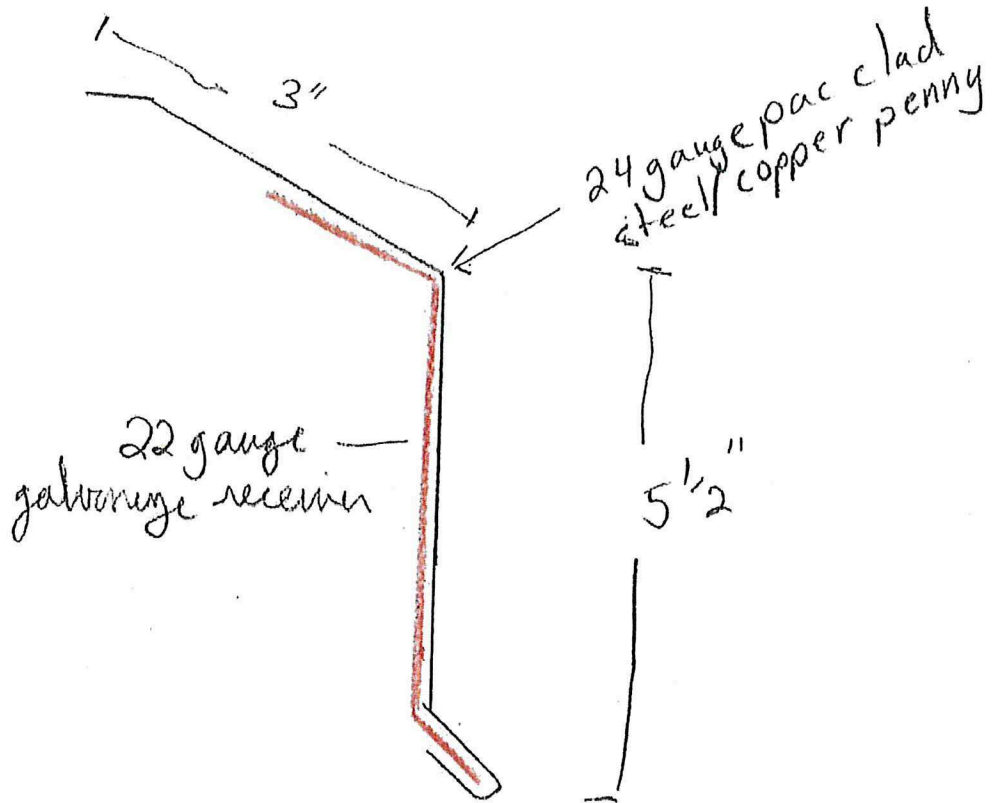 3"
24 gauge pac clad
steel/copper penny
22 gauge
galvanize receiver
5 1/2"